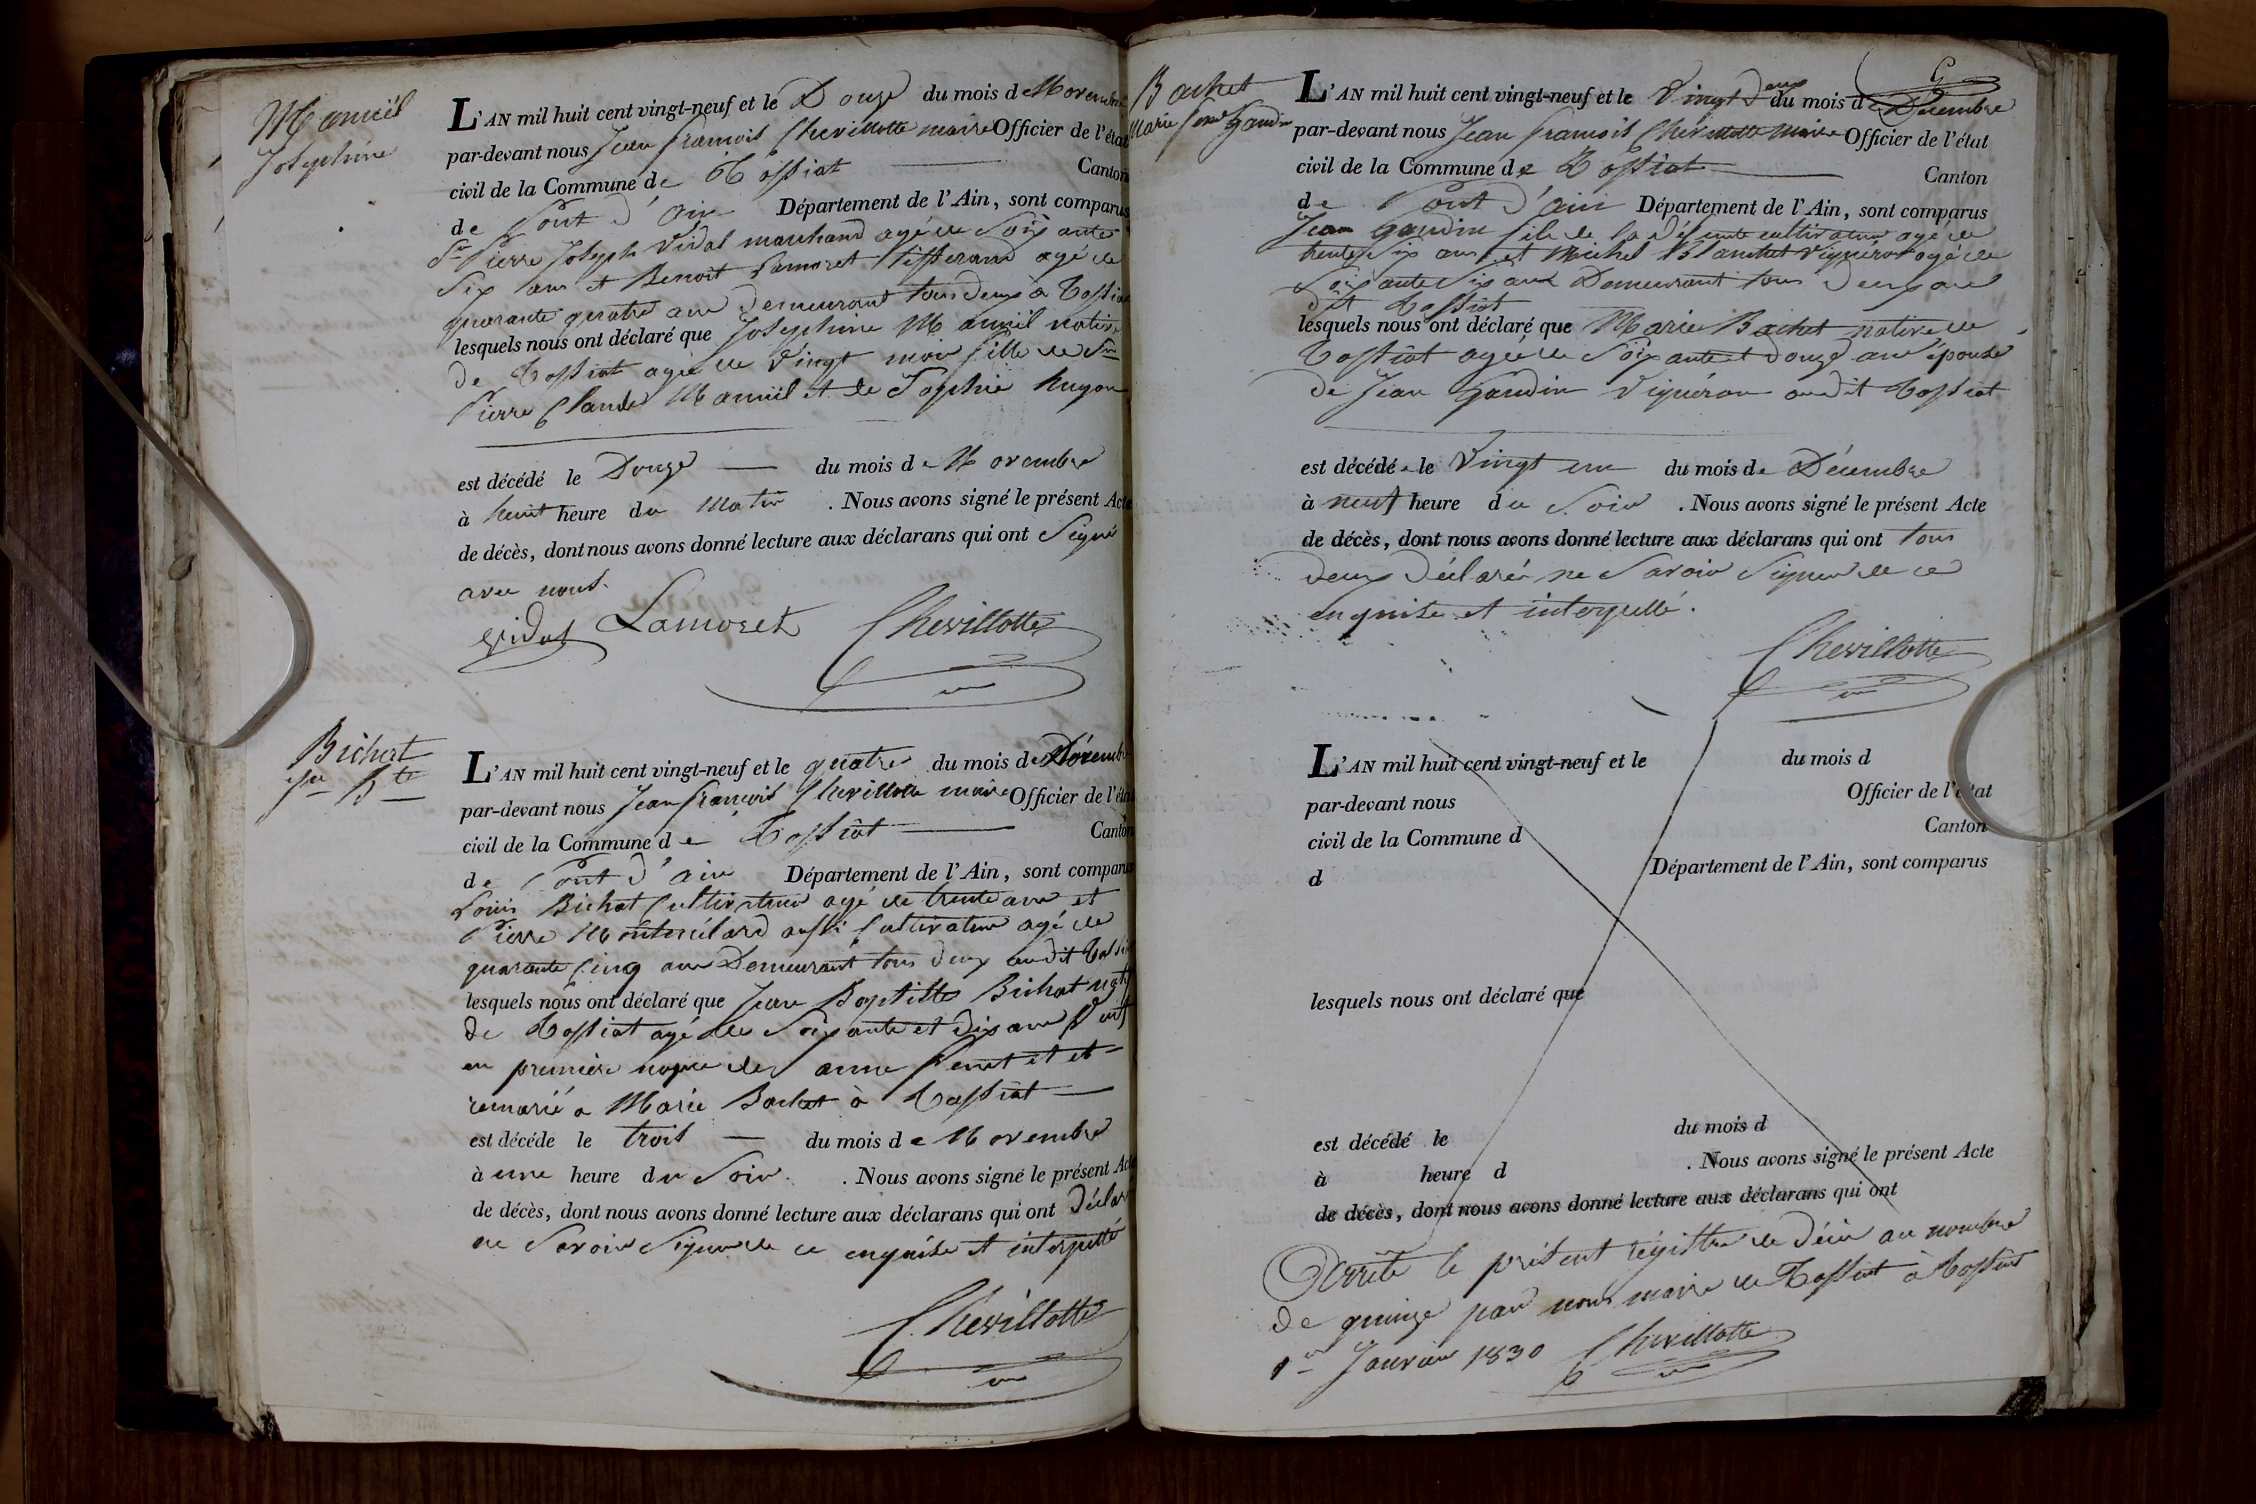 Manuël
Josephine
L'AN mil huit cent vingt-neuf et le Douze du mois de Novembre
par-devant nous Jean françois Chevillotte maire Officier de l'état
civil de la Commune de Tossiat Canton
de Pont d'ain Département de l'Ain, sont comparus
Sr Pierre Joseph Vidal marchand agé de Soixante
Six ans et Benoit Lamoret tisserand agé de
quarante quatre ans demeurant tous deux à Tossiat
lesquels nous ont déclaré que Josephine Manuël native
de Tossiat agée de Vingt mois fille de Sr
Pierre Claude Manuël et de Sophie hugon
est décédé le Douze du mois de Novembre
à huit heure du Matin . Nous avons signé le présent Acte
de décès, dont nous avons donné lecture aux déclarans qui ont Signé
avec nous.
Vidal Lamoret Chevillotte
Bichat
Jn Bte
L'AN mil huit cent vingt-neuf et le quatre du mois de
par-devant nous Jean françois Chevillotte maire Officier de l'état
civil de la Commune de Tossiat Canton
de Pont d'ain Département de l'Ain, sont comparus
Louis Bichat Cultivateur agé de trente ans et
Pierre aussi Cultivateur agé de
quarante Cinq ans Demeurant tous deux audit Tossiat
lesquels nous ont déclaré que Jean Baptiste Bichat natif
de Tossiat agé de Soixante et dix ans Veuf
en première nopce de anne et
remarié a Marie Bachet à Tossiat
est décéde le trois du mois de Novembre
à une heure du Soir . Nous avons signé le présent Acte
de décès, dont nous avons donné lecture aux déclarans qui ont Déclaré
ne Savoir Signer de ce enquise et interpellé
Chevillotte
Bachet
Marie fme Gaudin
L'AN mil huit cent vingt-neuf et le Vingt Deux du mois de Décembre
par-devant nous Jean françois Chevillotte Maire Officier de l'état
civil de la Commune de Tossiat Canton
de Pont d'ain Département de l'Ain, sont comparus
Jean Gaudin fils de la défunte cultivateur agé de
trente Six ans et Michel Blanchet Vigneron agé de
Soixante Six ans Demeurant tous deux au
dit Tossiat
lesquels nous ont déclaré que Marie Bachet native de
Tossiat agée de Soixante et Douze ans épouse
de Jean Gaudin Vigneron audit Tossiat
est décédée le Vingt un du mois de Décembre
à neuf heure du Soir . Nous avons signé le présent Acte
de décès, dont nous avons donné lecture aux déclarans qui ont tous
deux Déclaré ne Savoir Signer de ce
enquise et interpellé.
Chevillotte
L'AN mil huit cent vingt-neuf et le du mois d
par-devant nous Officier de l'état
civil de la Commune d Canton
d Département de l'Ain, sont comparus
lesquels nous ont déclaré que
est décédé le du mois d
à heure d . Nous avons signé le présent Acte
de décès, dont nous avons donné lecture aux déclarans qui ont
Arrêté le présent régistre de Décès au nombre
de quinze par nous maire de Tossiat à Tossiat
1er Janvier 1830 Chevillotte